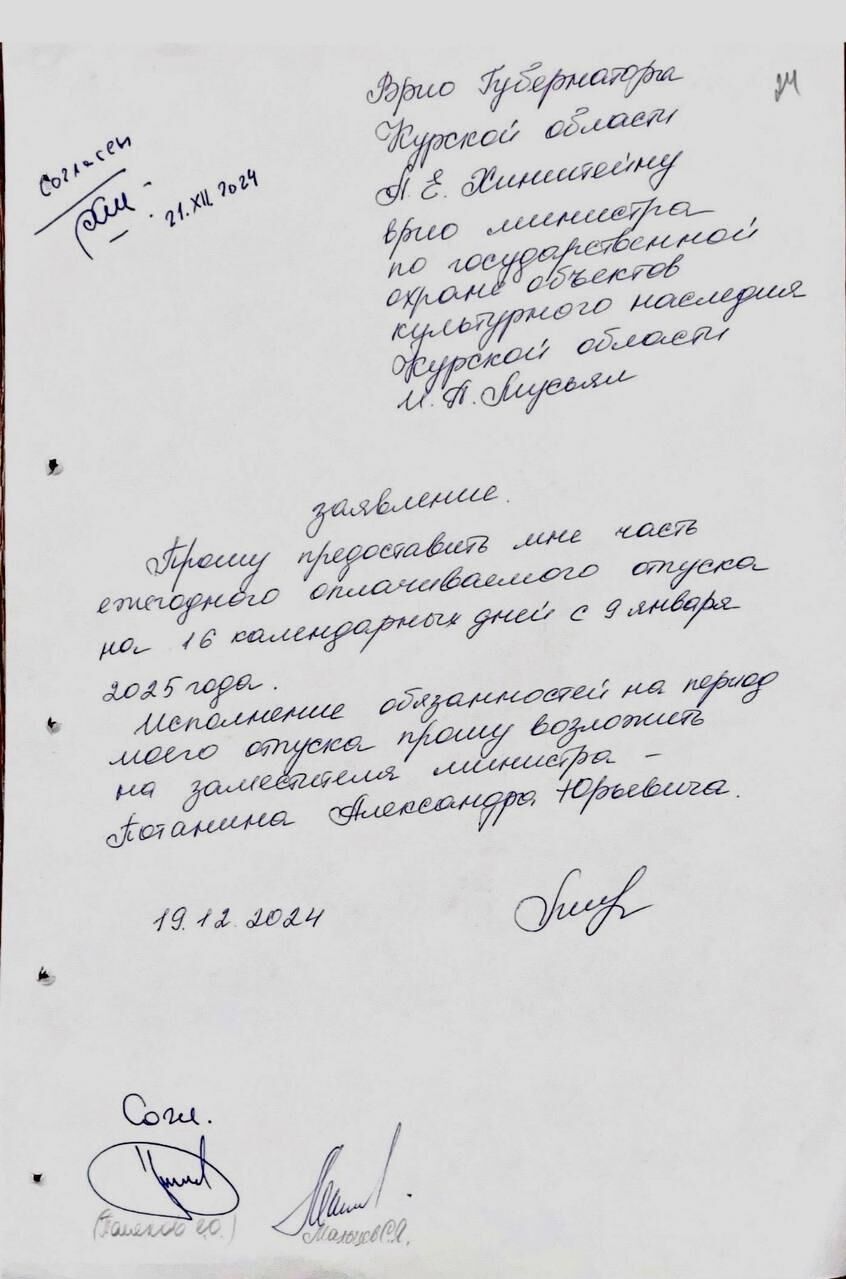 24
Согласен
21.XII.2024
Врио Губернатора
Курской области
А.Е. Хинштейну
врио министра
по государственной
охране объектов
культурного наследия
Курской области
И.П. Мусьял
заявление.
Прошу предоставить мне часть
ежегодного оплачиваемого отпуска
на 16 календарных дней с 9 января
2025 года.
Исполнение обязанностей на период
моего отпуска прошу возложить
на заместителя министра –
Потанина Александра Юрьевича.
19.12.2024
Согл.